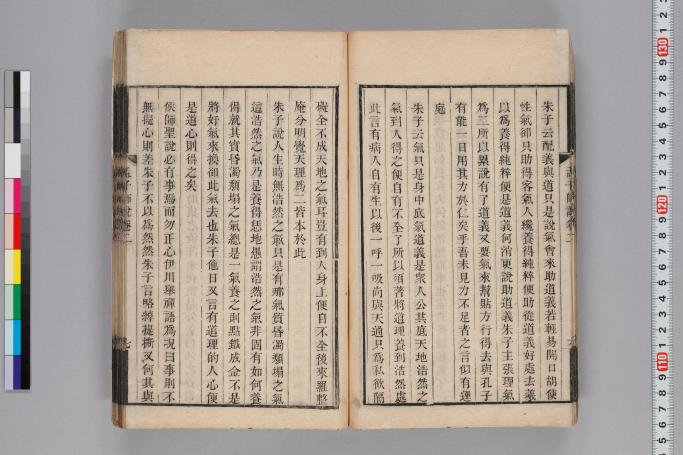 朱子云配義與道只是說氣會來助道義若輕易開口胡使
性氣卻只助得客氣人纔養得純粹便助從道義好處去羲
以為養得純粹便是道義何消更說助道義朱子主張理氣
為二所以累說有了道義又要氣來幫貼方行得去與孔子
有能一日用其力於仁矣乎吾未見力不足者之言似有逕
庭
朱子云氣只是身中底氣道義是眾人公共底天地浩然之
氣到人得之便自有不全了所以須著將道理養到浩然處
此言有病人自有生以後一呼一吸尚與天通只為私欲隔
礙全不成天地之氣耳豈有到人身上便自不全後來羅整
庵分明覺天理為二皆本於此
朱子說人生時無浩然之氣只是有那氣質昏濁頹塌之氣
這浩然之氣乃是養得恁地愚謂浩然之氣非固有如何養
得就其實昏濁頹塌之氣總是一氣養之則點鐵成金不是
將好氣來換卻此氣去也朱子他日又言有道理的人心便
是道心則得之矣
侯師聖說必有事焉而勿正心伊川舉禪語為況曰事則不
無擬心則差朱子不以為然然朱子言略綽提撕又何其與
孟子師說卷二